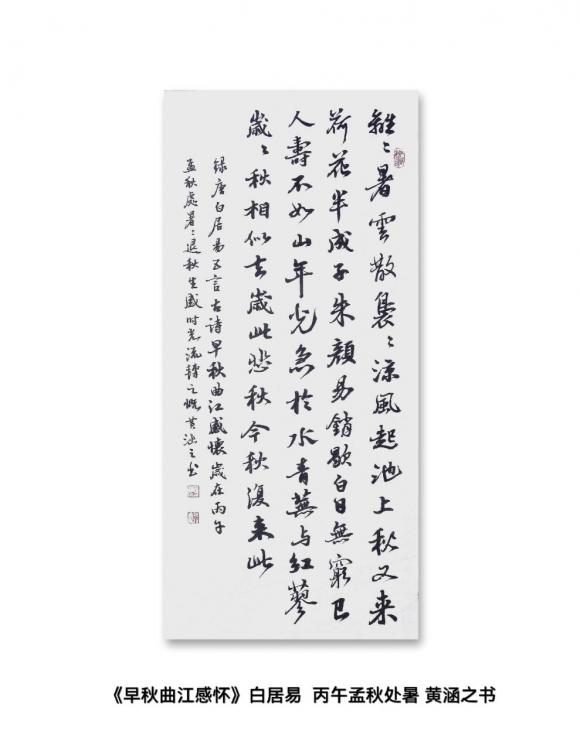 離〻暑雲散裊〻涼風起池上秋又来
荷花半成子朱顔易銷歇白日無窮已
人壽不如山年光急於水青蕪与紅蓼
歲〻秋相似去歲此悲秋今秋復来此
録唐白居易五言古詩早秋曲江感懷歲在丙午
孟秋處暑〻退秋生感时光流轉之慨黄涵之书
《早秋曲江感怀》白居易 丙午孟秋处暑 黄涵之书